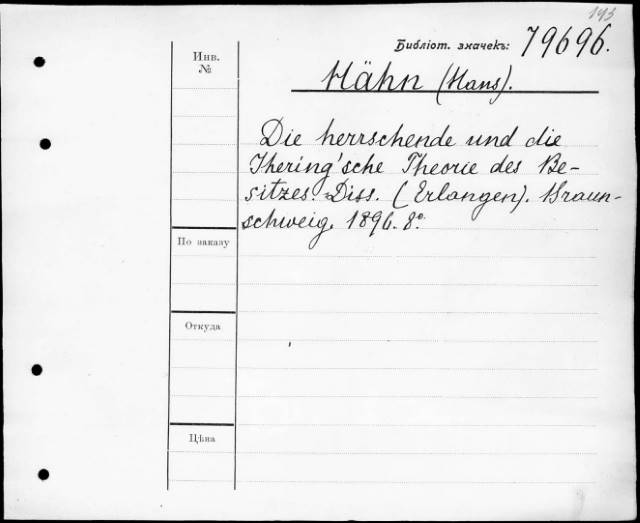 193
Библіот. значекъ: 79696.
Инв.
№
Hähn (Hans).
Die herrschende und die
Ihering'sche Theorie des Be-
sitzes. Diss. (Erlangen). Braun-
schweig. 1896. 8°.
По заказу
Откуда
Цѣна